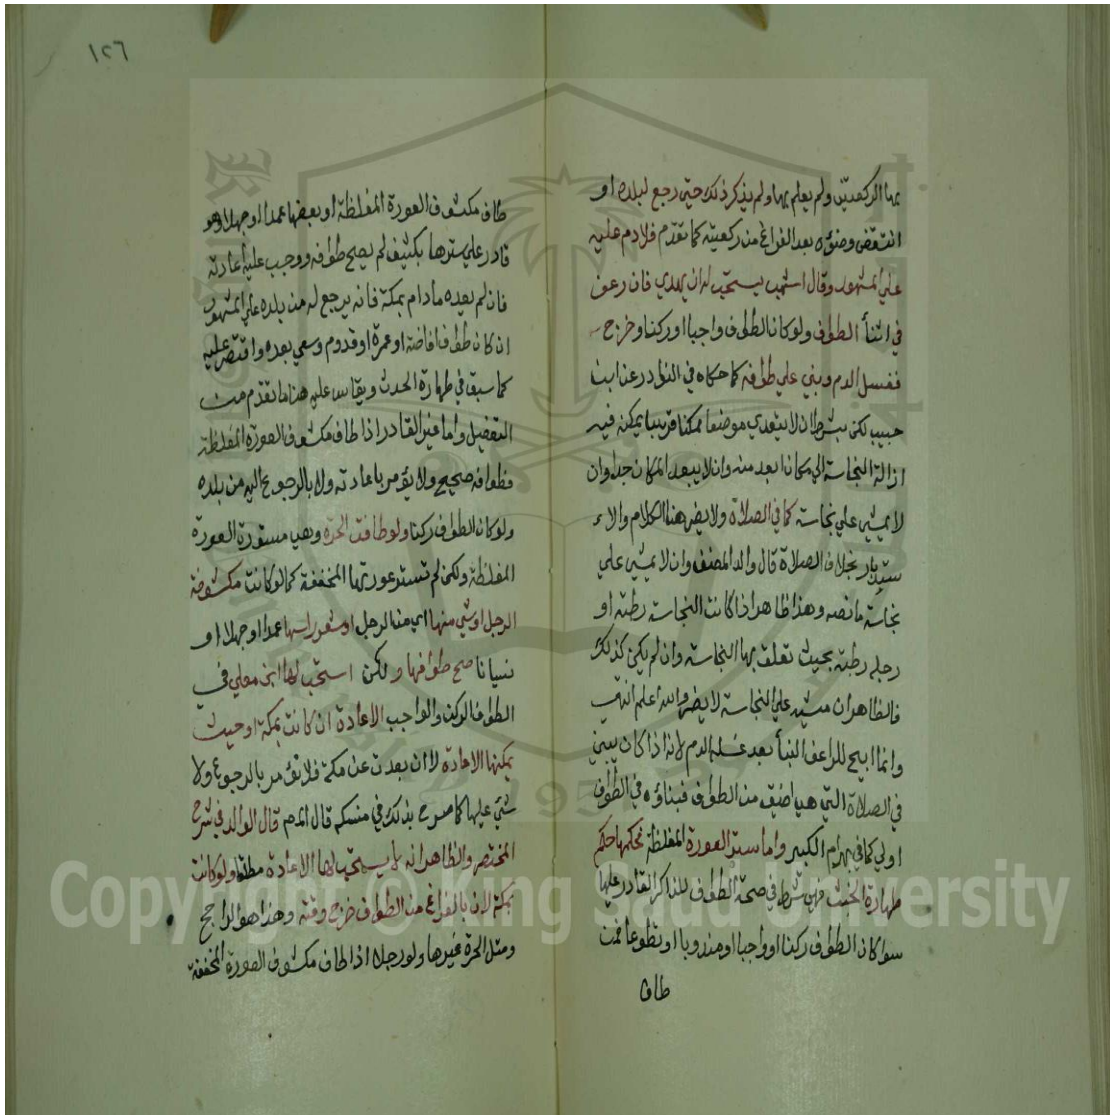 بها الركعتين ولم يعلم بها ولم يذكر ذلك حتى رجع لبلده او
انتقض وضوءه بعد الفراغ من ركعتيه كما تقدم فلا دم عليه
علي المشهور وقال اشهب يستحب له ان يهدي فان رعف
في اثنأ الطواف ولو كان الطواف واجبا او ركنا وخرج
فغسل الدم وبني علي طوافه كما حكاه في النوادر عن ابن
حبيب لكن بشرط ان لا يتعدي موضعا ممكنا قريبا يمكنه فيه
ازالة النجاسة الي مكان ابعد منه وان لا يبعد المكان جدا وان
لا يمشي علي نجاسة كما في الصلاة ولا يضر هنا الكلام والا
ستدبار بخلاف الصلاة قال والد المصنف وان لا يمشي علي
نجاسة ما نصه وهذا ظاهر اذا كانت النجاسة رطبة او
رجله رطبة بحيث تعلق بها النجاسة وان لم يكن كذلك
فالظاهر ان مشيه علي النجاسة لا يضر والله اعلم انتهي
وانما ابيح للراعف البنأ بعد غسله الدم لانه اذا كان يبني
في الصلاة التي هي اضيق من الطواف فبناؤه في الطواف
اولي كما في بهرام الكبير واما ستر العورة المغلظة فحكمها حكم
طهارة الخبث فهي شرط في صحة الطواف للذاكر القادر عليها
سوا كان الطواف ركنا او واجبا او مندوبا او تطوعا فمن
طاف
١٢٦
طاف مكشوف العورة المغلظة او بعضها عمدا او جهلا وهو
قادر علي سترها بكثيف لم يصح طوافه ووجب عليه اعادته
فان لم يعده ما دام بمكة فانه يرجع له من بلده علي المشهور
ان كان طواف افاضة او عمرة او قدوم وسعي بعده واقتصر عليه
كما سبق في طهارة الحدث ويقاس عليه هنا ما تقدم من
التفصيل واما غير القادر اذا طاف مكشوف العورة المغلظة
فطوافه صحيح ولا يؤمر باعادته ولا بالرجوع اليه من بلده
ولو كان الطواف ركنا ولو طافت الحرة وهي مستورة العورة
المغلظة ولكن لم تستر عورتها المخففة كما لو كانت مكشوفة
الرجل او شي منها اي من الرجل او شعور اسها عمدا او جهلا او
نسيانا صح طوافها ولكن استحب لها ابن معلي في
الطواف الركن والواجب الاعادة ان كانت بمكة او حيث
يمكنها الاعادة لا ان بعدت عن مكة فلا تؤمر بالرجوع ولا
شي عليها كما صرح بذلك في منسكه قال قال الوالد في شرح
المختصر والظاهر انه لا يستحب لها الاعادة مطلقا ولو كانت
بمكة لان بالفراغ من الطواف خرج وقته وهذا هو الراجح
ومثل الحرة غيرها ولو رجلا اذا طاف مكشوف العورة المخففة
Copyright © King Saud University
1957